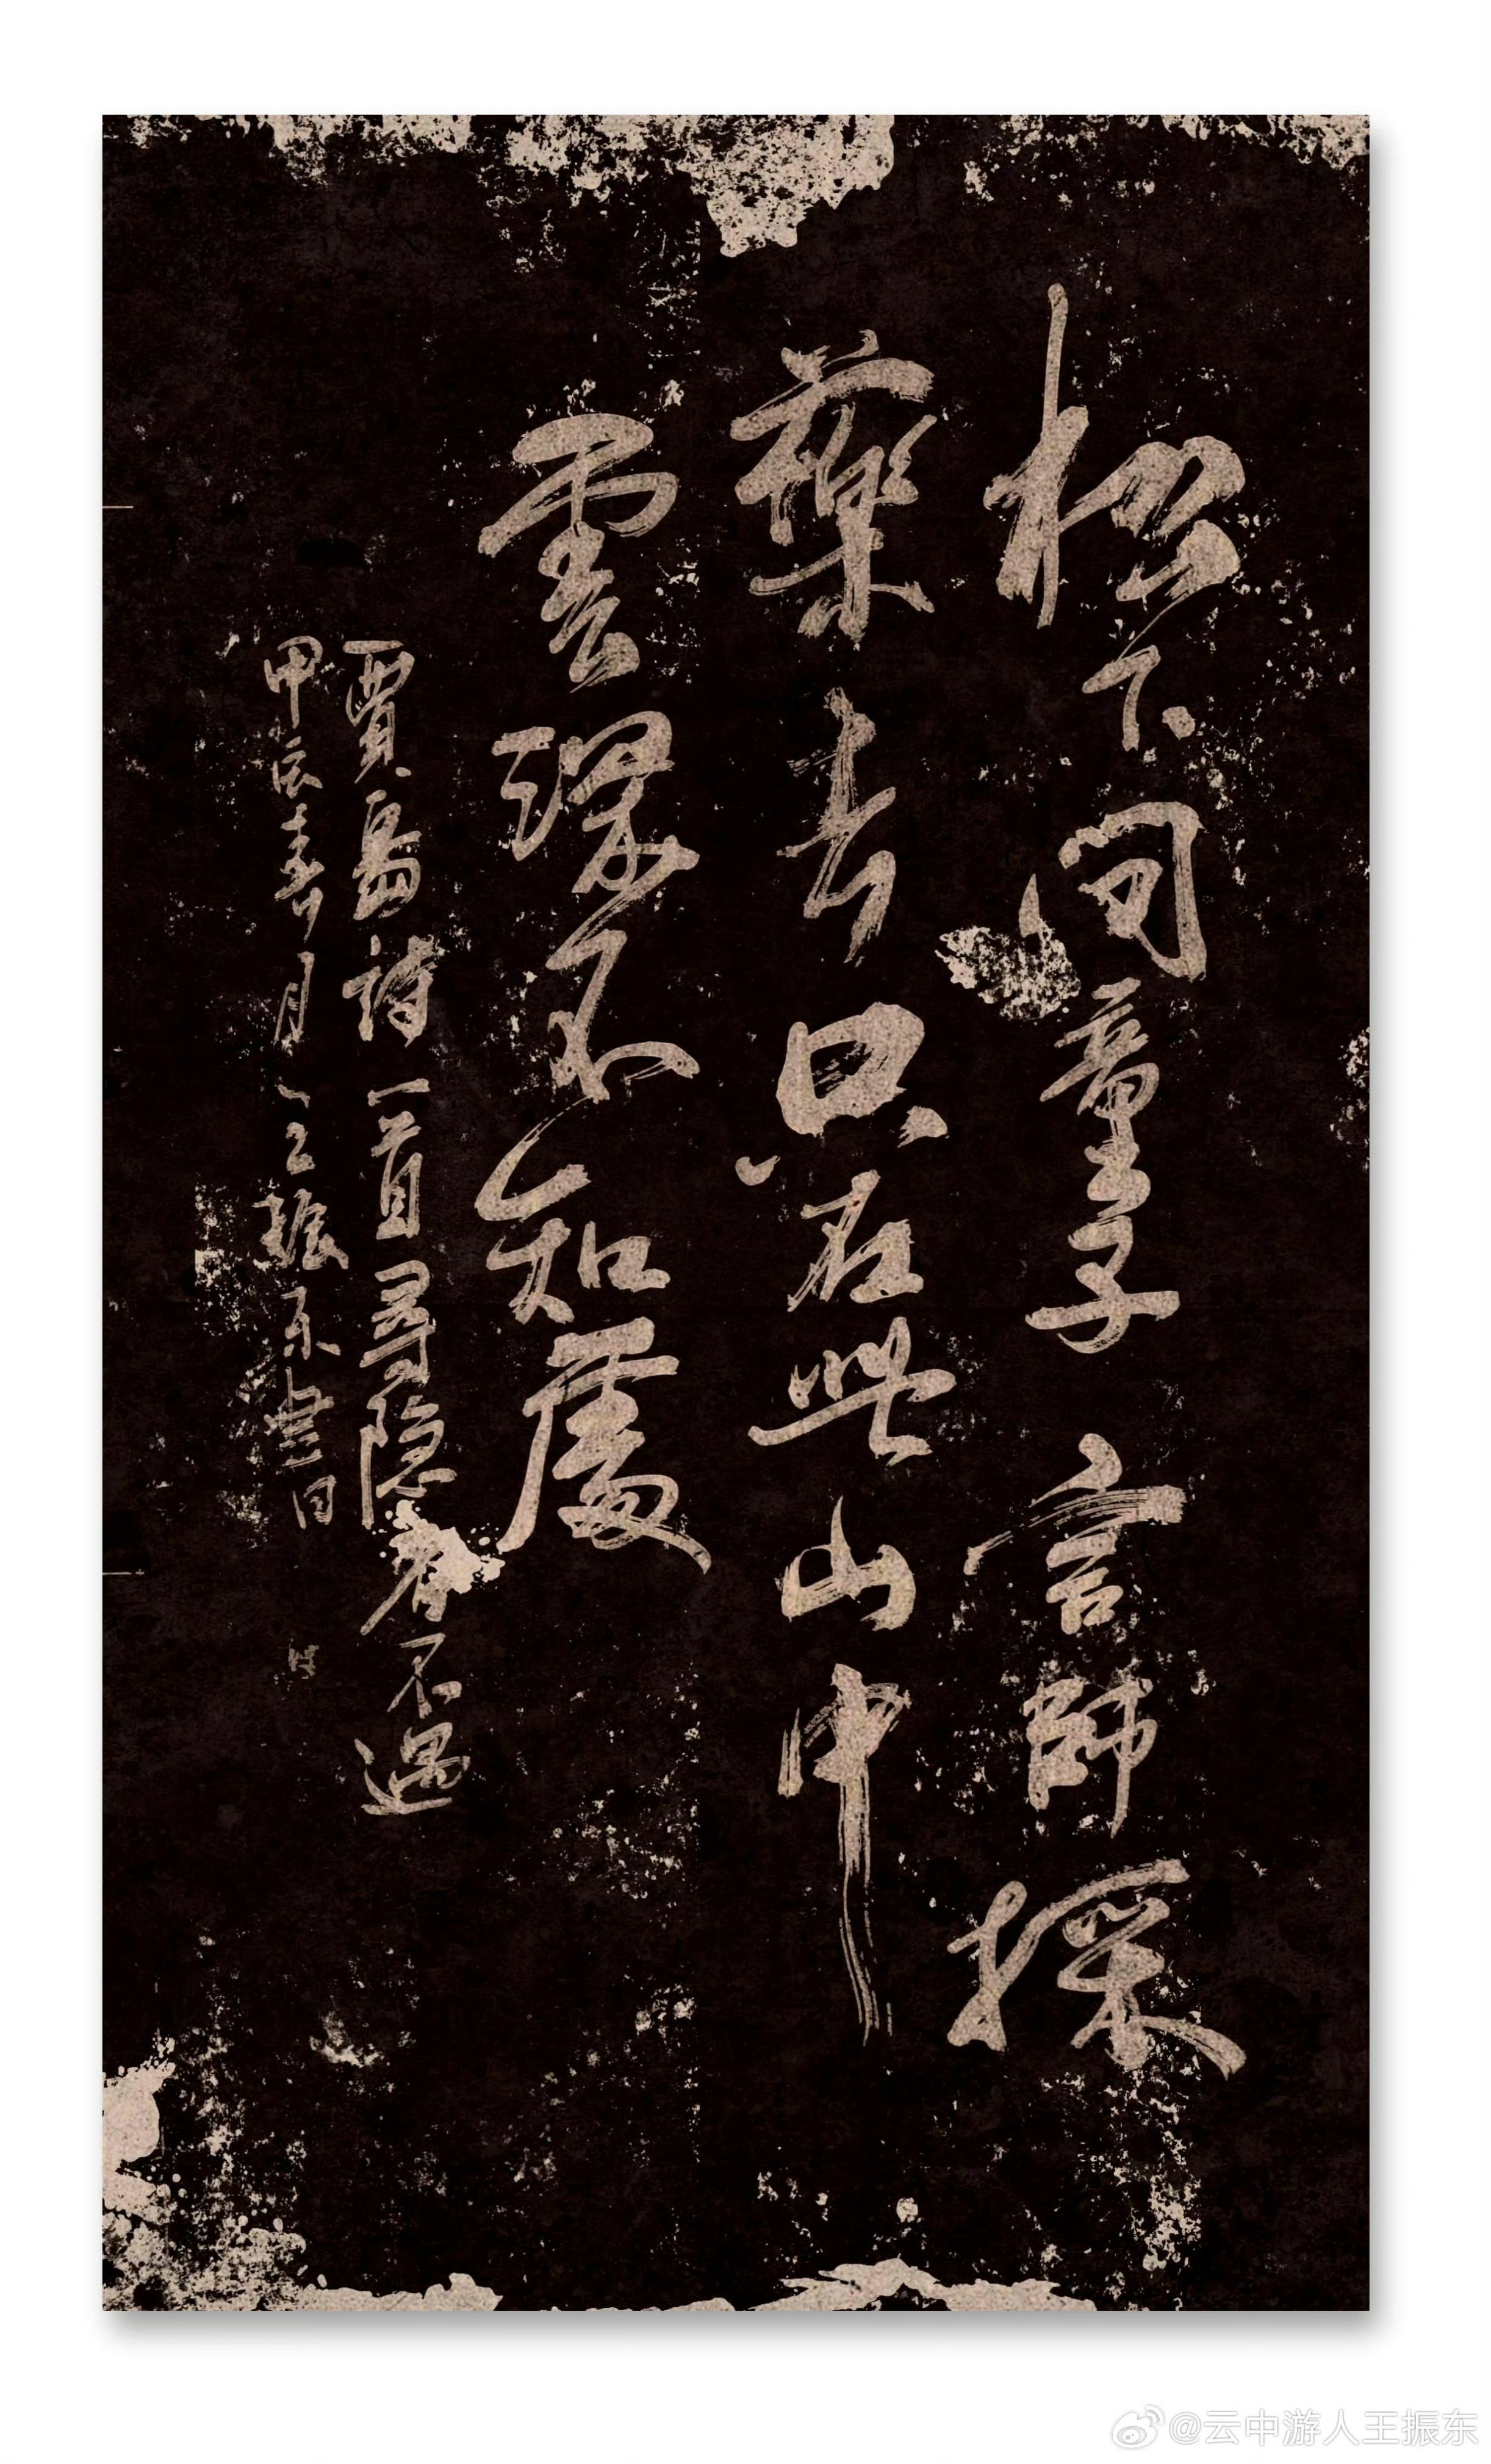 松下问童子言師採
藥去只在此山中
雲深不知處
賈島詩一首尋隐者不遇
甲辰春月王振东書
@云中游人王振东